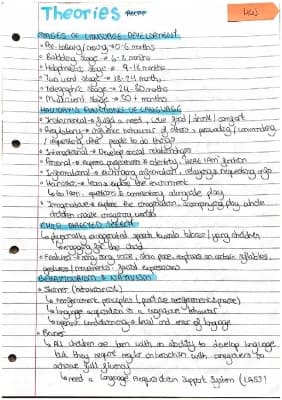 Theories Recap
STAGES OF LANGUAGE DEVELOPMENT
• Pre-talking / cooing → 0-6 months
• Babbling stage → 6-8 months
• Holophrastic stage → 9-18 months
• Two word stage → 18-24 months
• Telegraphic stage → 24-30 months
• Multi word stage → 30+ months
HALLIDAY'S FUNCTIONS OF LANGUAGE
• Instrumental → fulfils a need, like food / drink / comfort
• Regulatory → influence behaviour of others → persuading / commanding
/ requesting other people to do things
• Interactional → develop social relationships
• Personal → express preferences + identity
• Informational → exchanging information → relaying + requesting info
• Heuristic → learn + explore the environment
↳ to learn, questions or commentary alongside play
• Imaginative → explore the imagination, accompanying play where
children create imaginary worlds
CHILD DIRECTED SPEECH
↳ physically exaggerated speech towards babies / young children
• Features → song, slower pace, emphasis on certain syllables,
gestures (movements facial expressions)
BEHAVIOURISM & NATIVISM
• Skinner (behaviourist)
↳ reinforcement principles (positive reinforcement / praise)
↳ language acquisition is a cognitive behaviour
• Bruner
↳ All children are born with an ability to develop language
but they require regular interaction with caregivers to
achieve full fluency
↳ need a Language Acquisition Support System (LASS)